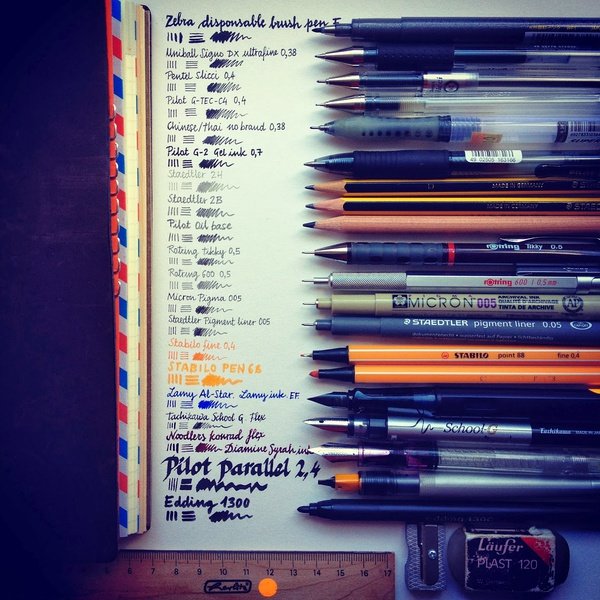 Zebra disposable brush pen F
Uniball Signo DX ultrafine 0,38
Pentel Slicci 0,4
Pilot G-TEC-C4 0,4
Chinese/thai no brand 0,38
Pilot G-2 Gel ink 0,7
Staedtler 2H
Staedtler 2B
Pilot Oil base
Rotring Tikky 0,5
Rotring 600 0,5
Micron Pigma 005
Staedtler Pigment liner 005
Stabilo fine 0,4
STABILO PEN 68
Lamy Al-Star. Lamy ink EF.
Tachikawa School G. Flex
Noodlers konrad flex
Diamine Syrah ink
Pilot Parallel 2,4
Edding 1300
MADE IN GERMANY
rotring Tikky 0.5
rotring 600 | 0.5mm
MICRON 005 ARCHIVAL INK
STAEDTLER pigment liner 0.05
STABILO point 88 fine 0,4
School G Tachikawa
Läufer
PLAST 120
5 6 7 8 9 10 11 12 13 14 15 16 17